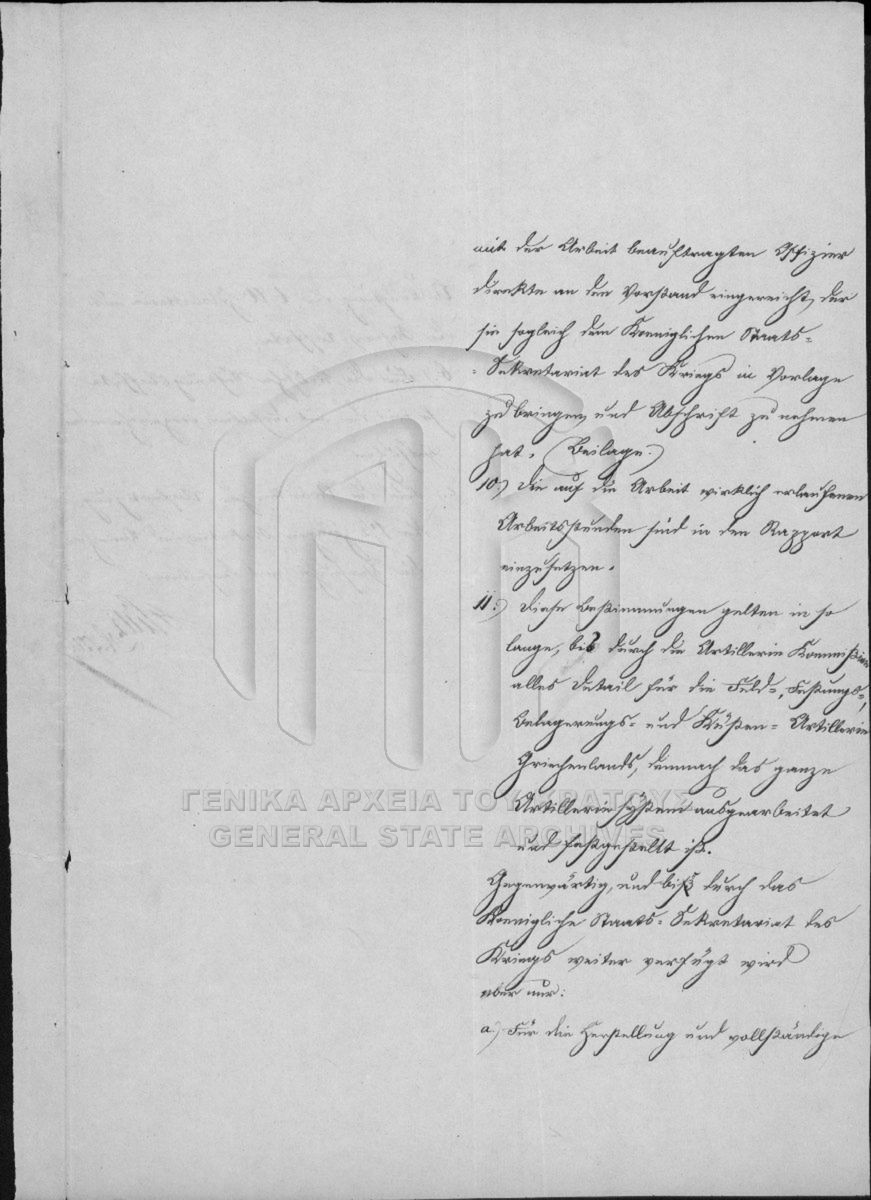 mit der Arbeit beauftragten Offizier
direkte an den Vorstand eingereicht, der
sie sogleich dem Koeniglichen Staats=
=Sekretariat des Kriegs in Vorlage
zu bringen, und Abschrift zu nehmen
hat. (Beilage.)
10.) Die auf die Arbeit wirklich erlaufenen
Arbeitsstunden sind in den Rapport
einzusetzen.
11.) Diese Bestimmungen gelten in so
lange, bis durch die Artillerie Kommission
alles Detail für die Feld=, Festungs=,
Belagerungs= und Küsten=Artillerie
Griechenlands, demnach das ganze
Artilleriesystem ausgearbeitet
und festgestellt ist.
Gegenwärtig, und bis durch das
Koenigliche Staats=Sekretariat des
Kriegs weiter verfügt wird
aber nur:
a.) Für die Herstellung und vollständige
ΓΕΝΙΚΑ ΑΡΧΕΙΑ ΤΟΥ ΚΡΑΤΟΥΣ
GENERAL STATE ARCHIVES